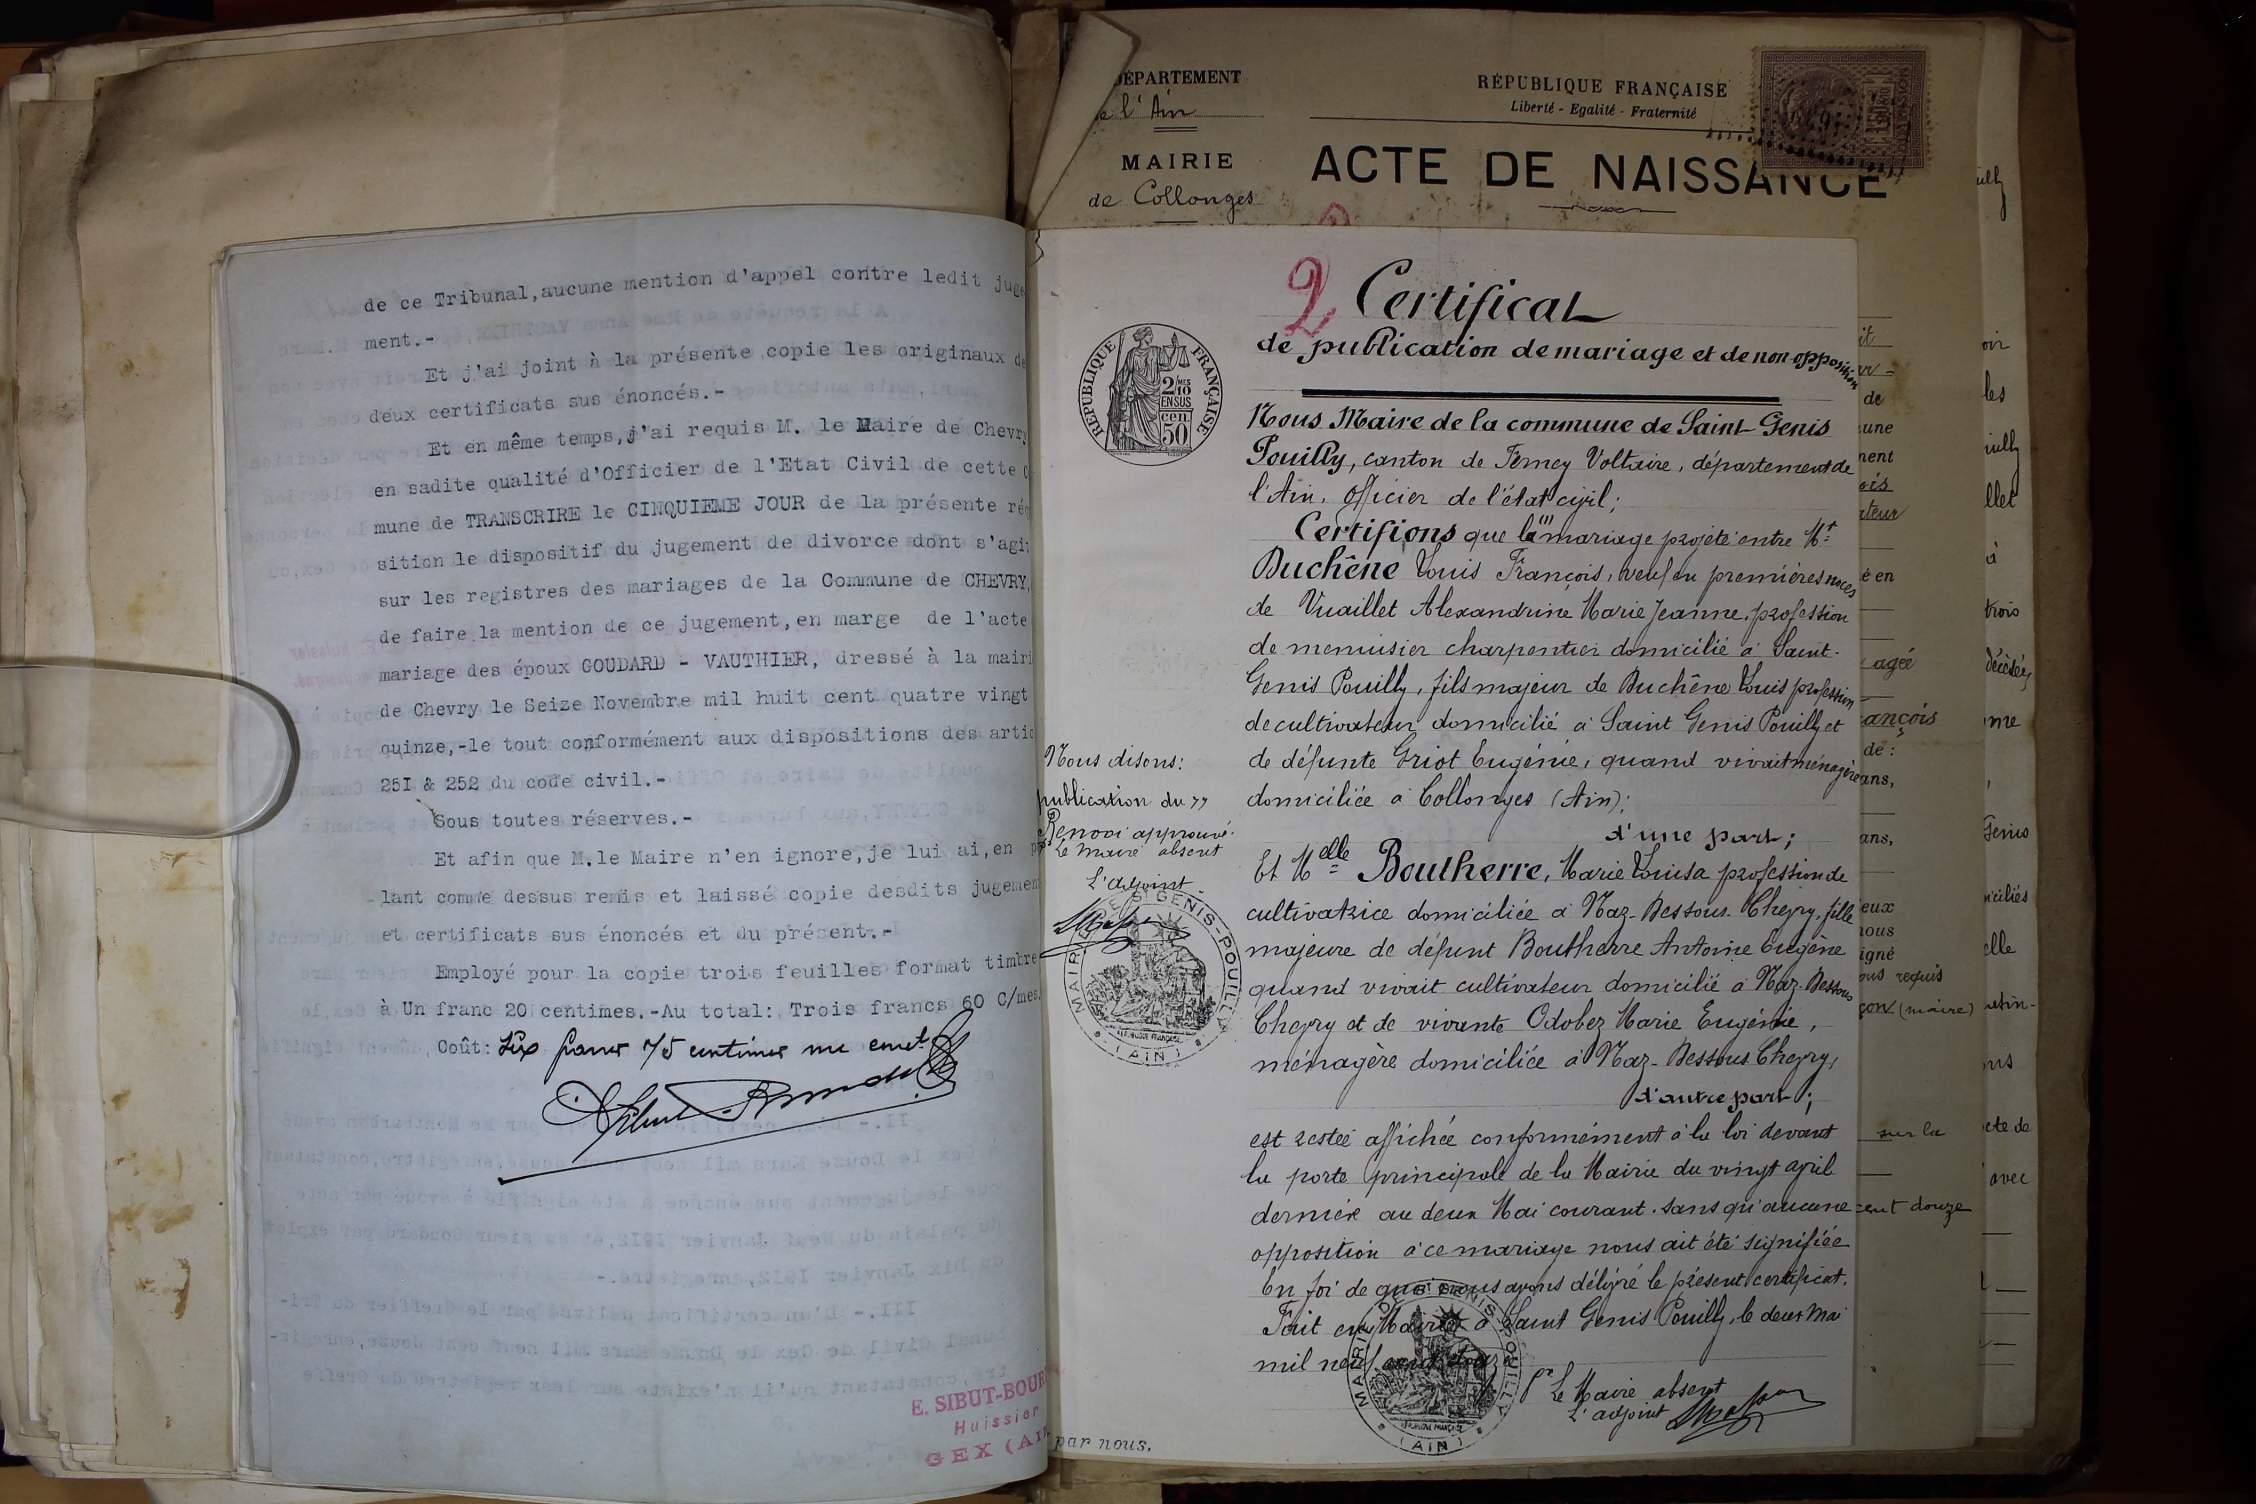 de ce Tribunal,aucune mention d'appel contre ledit juge
ment.-
Et j'ai joint à la présente copie les originaux de
deux certificats sus énoncés.-
Et en même temps,j'ai requis M. le Maire de Chevry
en sadite qualité d'Officier de l'Etat Civil de cette C
mune de TRANSCRIRE le CINQUIEME JOUR de la présente réq
sition le dispositif du jugement de divorce dont s'agit
sur les registres des mariages de la Commune de CHEVRY,
de faire la mention de ce jugement,en marge de l'acte
mariage des époux GOUDARD - VAUTHIER, dressé à la mairi
de Chevry le Seize Novembre mil huit cent quatre vingt
quinze,-le tout conformément aux dispositions des artic
251 & 252 du code civil.-
Sous toutes réserves.-
Et afin que M.le Maire n'en ignore,je lui ai,en p
lant comme dessus remis et laissé copie desdits jugemen
et certificats sus énoncés et du présent.-
Employé pour la copie trois feuilles format timbre
à Un franc 20 centimes.-Au total: Trois francs 60 C/mes.
Coût: Six francs 75 centimes
E. SIBUT-BOUR
Huissier
GEX (AIN
DÉPARTEMENT
de l'Ain
MAIRIE
de Collonges
RÉPUBLIQUE FRANÇAISE
Liberté - Egalité - Fraternité
ACTE DE NAISSANCE
2
Certificat
de publication de mariage et de non opposition
RÉPUBLIQUE FRANÇAISE
2/10 MES
EN SUS
50 cen
Nous Maire de la commune de Saint-Genis
Pouilly, canton de Ferney Voltaire, département de
l'Ain, officier de l'état civil;
Certifions que le mariage projeté entre Mr
Duchêne Louis François, veuf en premières noces
de Vuaillet Alexandrine Marie Jeanne, profession
de menuisier charpentier domicilié à Saint-
Genis Pouilly, fils majeur de Duchêne Louis profession
de cultivateur domicilié à Saint Genis Pouilly et
de défunte Griot Eugénie, quand vivait ménagère
domiciliée à Collonges (Ain);
d'une part;
Et Melle Boutherre, Marie Louisa profession de
cultivatrice domiciliée à Naz-Dessous-Chevry, fille
majeure de défunt Boutherre Antoine Eugène
quand vivait cultivateur domicilié à Naz-Dessous
Chevry et de vivante Odobez Marie Eugénie,
ménagère domiciliée à Naz-Dessous Chevry,
d'autre part;
est restée affichée conformément à la loi devant
la porte principale de la Mairie du vingt avril
dernier au deux Mai courant, sans qu'aucune
opposition à ce mariage nous ait été signifiée
En foi de quoi nous avons délivré le présent certificat.
Fait en Mairie à Saint Genis Pouilly, le deux Mai
mil neuf cent douze
Pr Le Maire absent
L'adjoint
MAIRIE DE ST GENIS-POUILLY
(AIN)
Nous disons:
publication du "
Renvoi approuvé.
Pr Le Maire absent
L'adjoint
MAIRIE DE ST GENIS-POUILLY
(AIN)
par nous.
de
une
agée
ançois
de :
ans,
ans,
eux
nous
igné
ous requis
(maire)
sur la
cent douze
les
à
trois
décédés
Genis
elle
avec